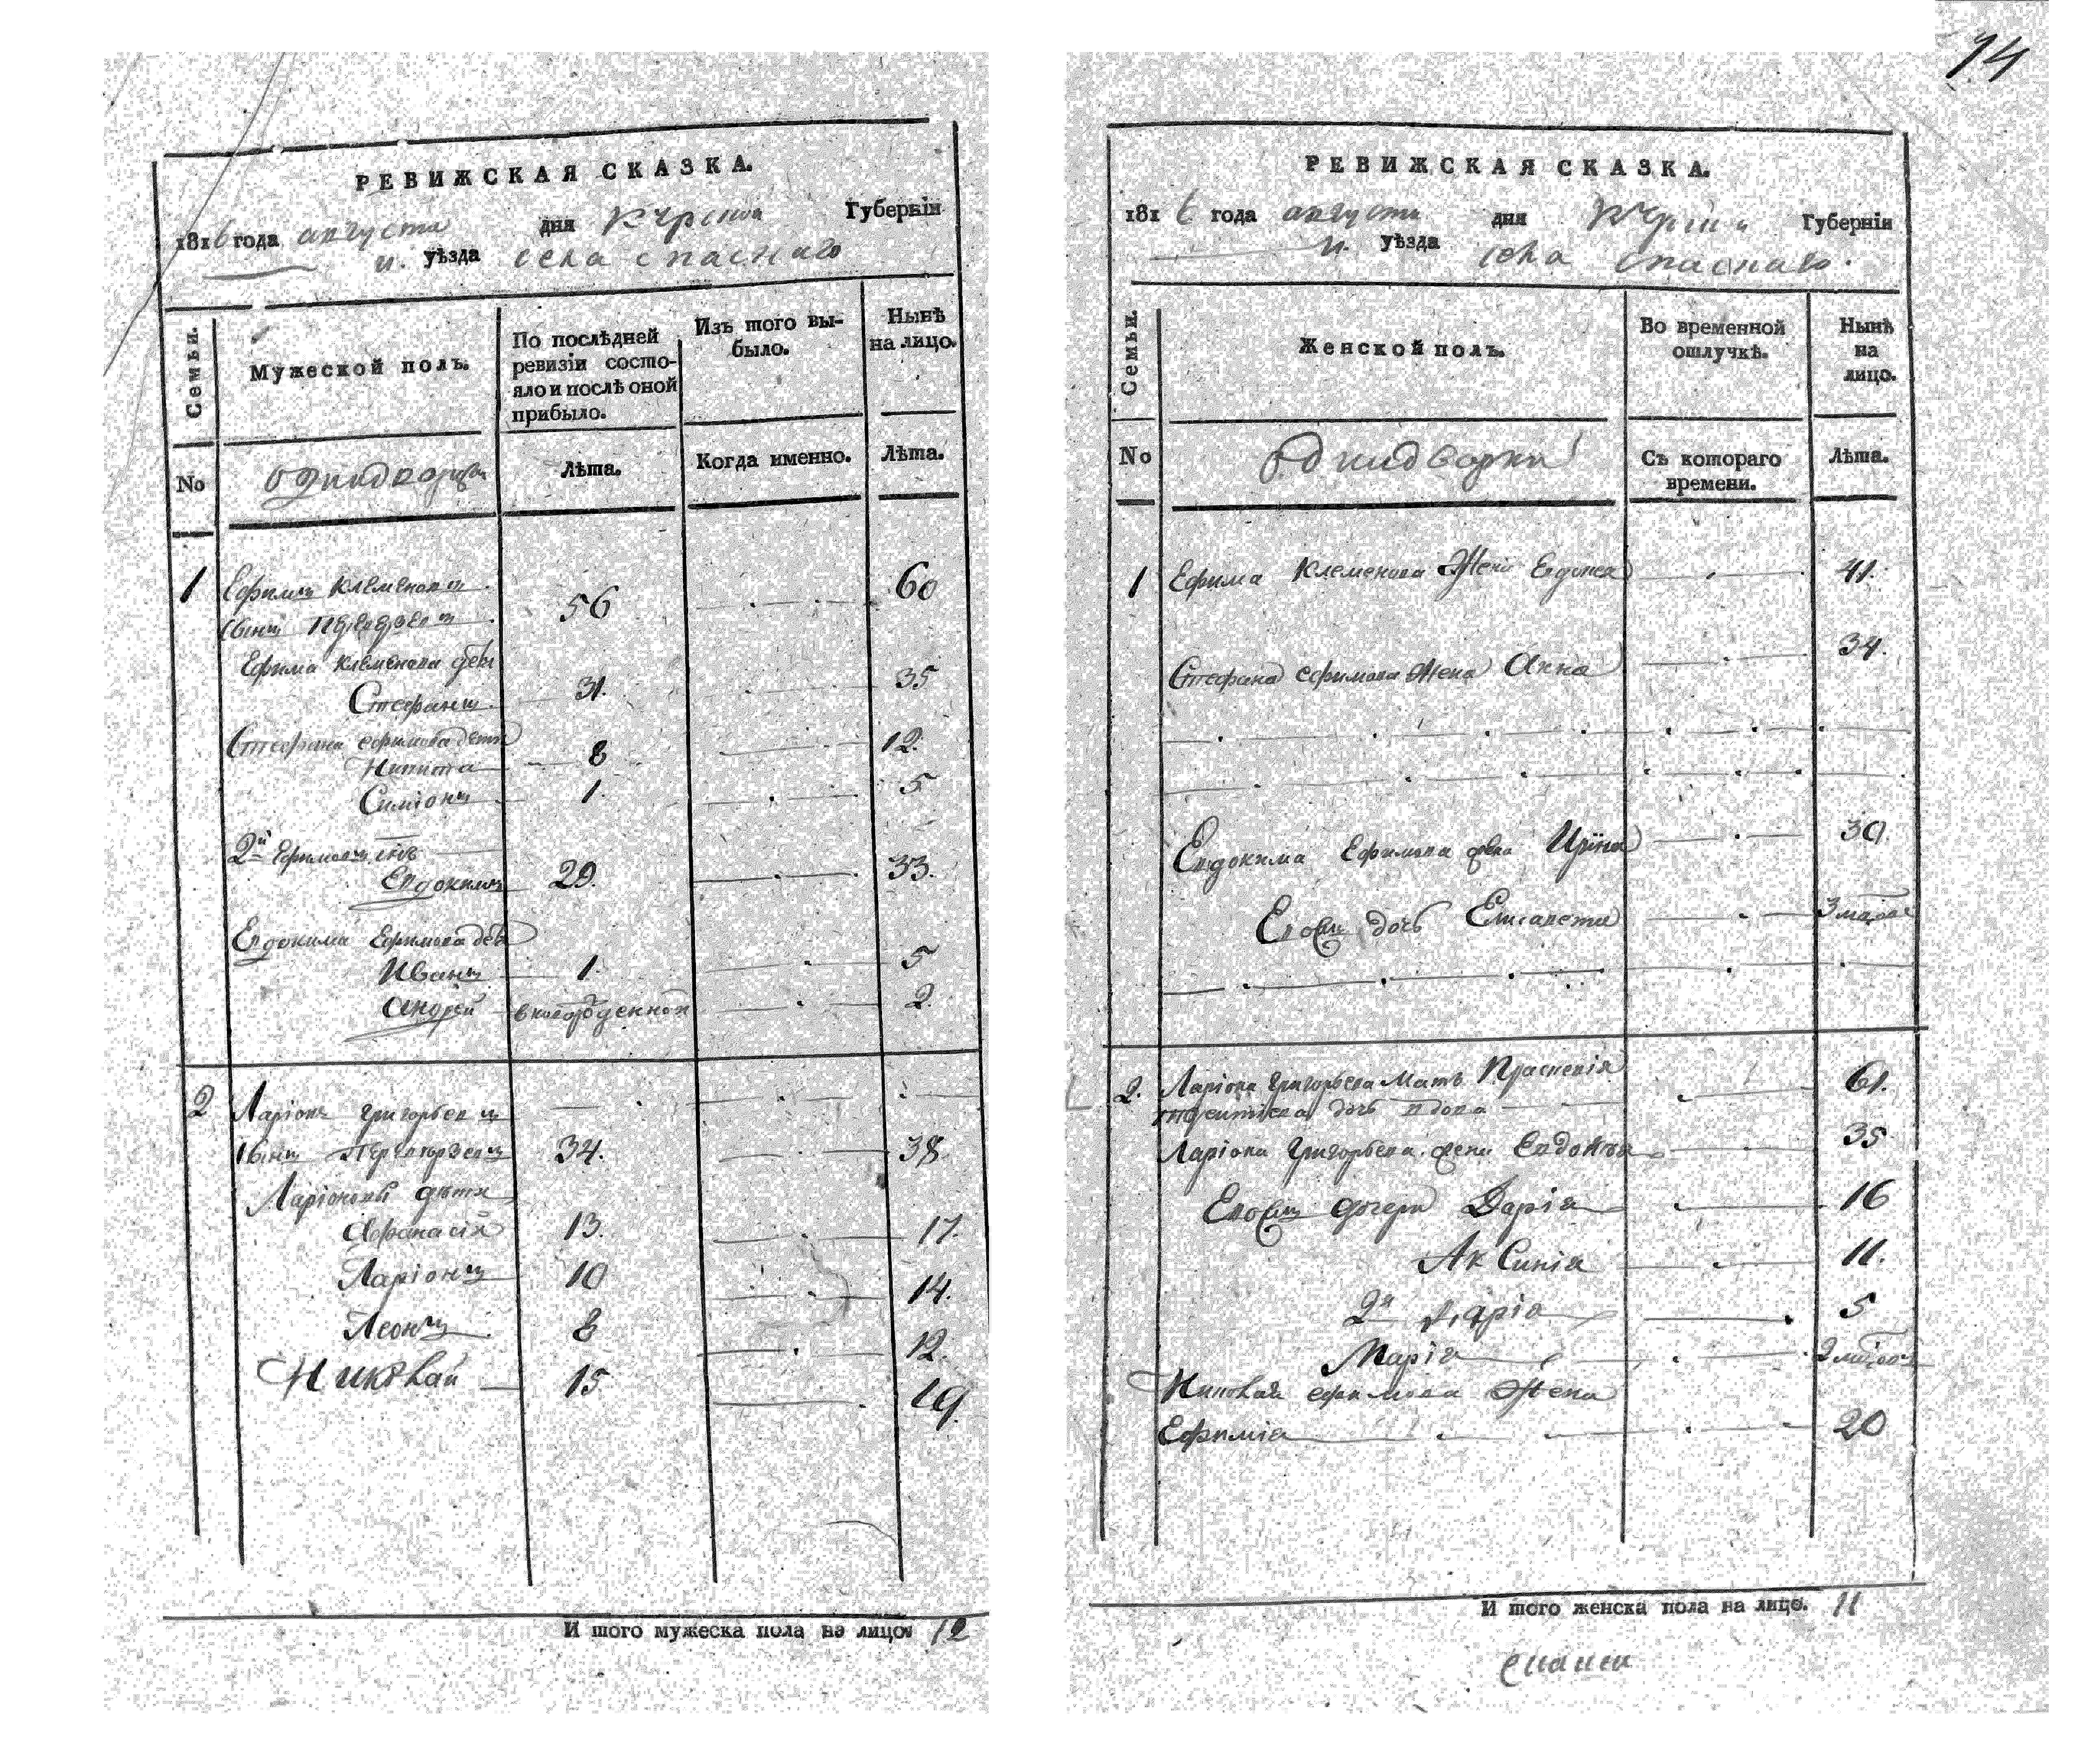 74
РЕВИЖСКАЯ СКАЗКА.
1816 года августа дня Курской Губерніи
и. уѣзда села спаснаго
Семьи.
Мужеской полъ.
По послѣдней ревизіи состояло и послѣ оной прибыло.
Изъ того выбыло.
Нынѣ на лицо.
No
однодворцы
Лѣта.
Когда именно.
Лѣта.
1 Ефимъ Клеменовъ
сынъ 56 60
Ефима Клеменова дѣти
Стефанъ. 31. 35
Стефана ефимова дети
Никита 8 12.
Симіонъ 1. 5
2й Ефимовъ снъ
Евдокимъ 29. 33.
Евдокима Ефимова
Иванъ 1. 5
Андрей 2.
2 Ларіонъ Григорьевъ
сынъ 34. 38
Ларіоновы дѣти
Афонасій 13. 17.
Ларіонъ 10 14.
Леонъ 8 12.
Николай 15 19.
И того мужеска пола на лицо 12
РЕВИЖСКАЯ СКАЗКА.
1816 года августа дня Курской Губерніи
и. уѣзда села спаснаго.
Семьи.
Женской полъ.
Во временной отлучкѣ.
Нынѣ на лицо.
No
однодворки
Съ котораго времени.
Лѣта.
1 Ефима Клеменова Жена 41.
Стефана ефимова Жена Анна 34.
Евдокима Ефимова жена Ирина 30
Евоſъ дочь Елисавета
2. Ларіона Григорьева Мать Прасковія 61.
дочь вдова
Ларіона Григорьева жена 35
Евоſъ дочери Дарія 16
АкСинія 11.
2я Дарія 5
Марія
Николая ефимова Жена
Ефимія 20
И того женска пола на лицо. 11